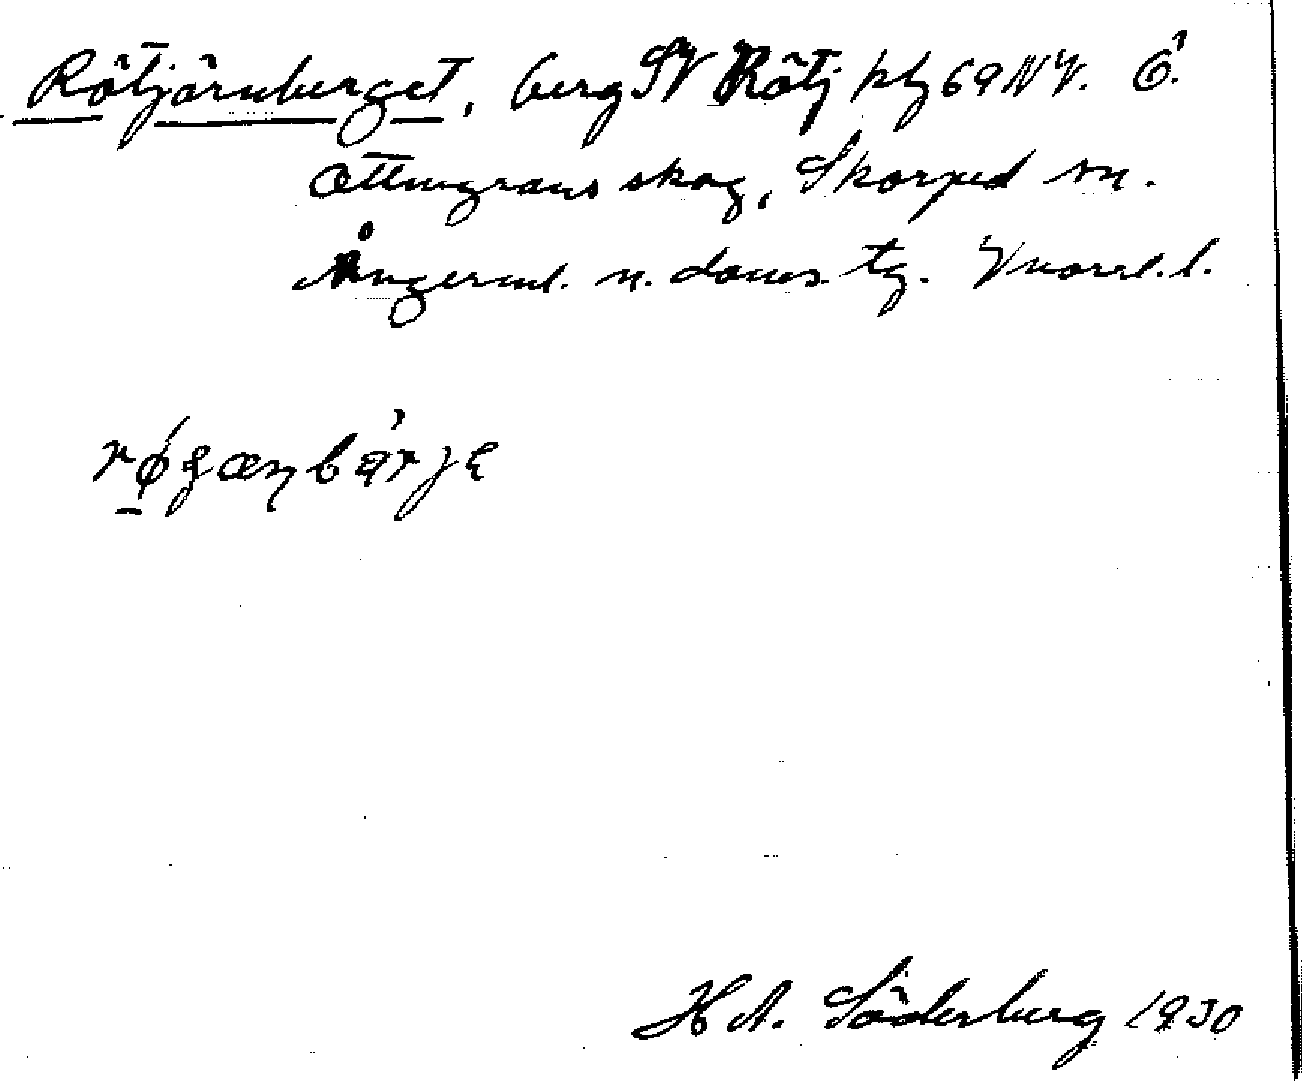 Rötjärnberget, berg SV Rötj kbl 69 NV. Ö.
Ottingrans skog, Skorped sn.
Ångerml. n. doms. tg.
røȼænbärje
H A. Söderberg 1930